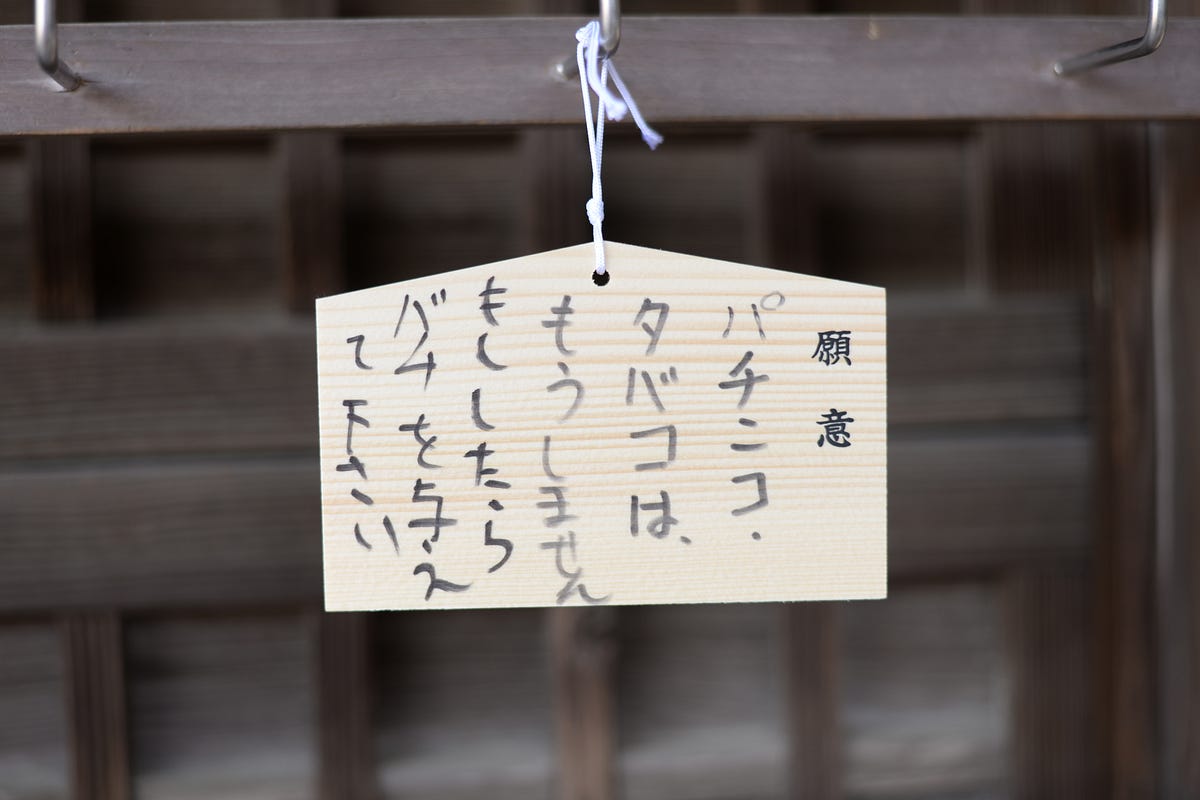 願意
パチンコ.
タバコは、
もうしません
もししたら
バチを与え
て下さい